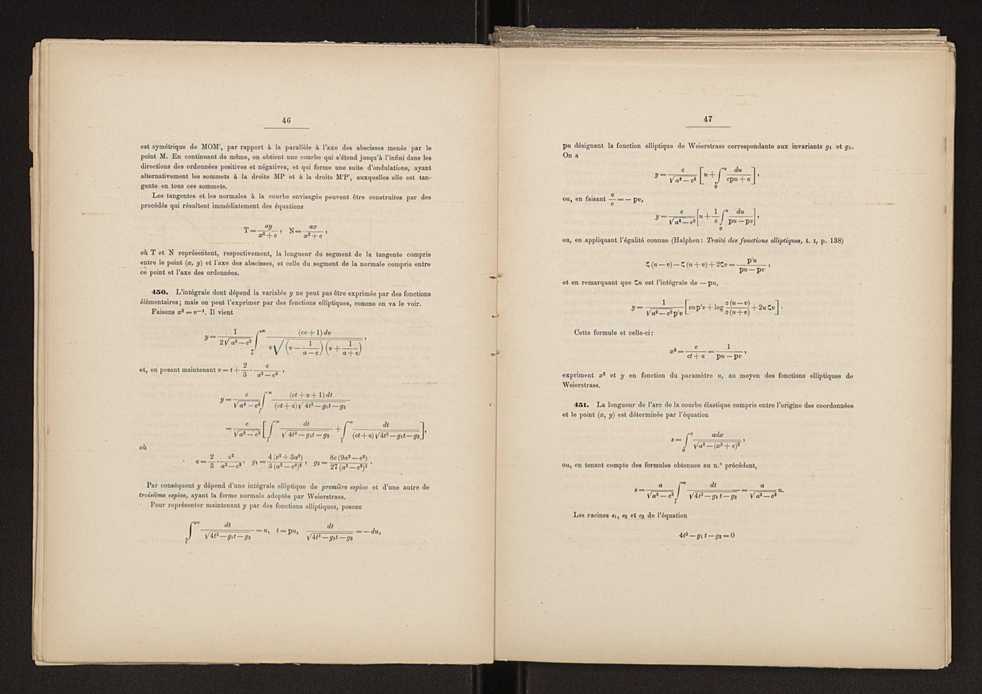 46
est symétrique de MOM', par rapport à la parallèle à l'axe des abscisses menée par le
point M. En continuant de même, on obtient une courbe qui s'étend jusqu'à l'infini dans les
directions des ordonnées positives et négatives, et qui forme une suite d'ondulations, ayant
alternativement les sommets à la droite MP et à la droite M'P', auxquelles elle est tan-
gente en tous ces sommets.
Les tangentes et les normales à la courbe envisagée peuvent être construites par des
procédés qui résultent immédiatement des équations
T = ay/(x² + c), N = ax/(x² + c),
où T et N représentent, respectivement, la longueur du segment de la tangente compris
entre le point (x, y) et l'axe des abscisses, et celle du segment de la normale compris entre
ce point et l'axe des ordonnées.
450. L'intégrale dont dépend la variable y ne peut pas être exprimée par des fonctions
élémentaires; mais on peut l'exprimer par des fonctions elliptiques, comme on va le voir.
Faisons x² = v⁻¹. Il vient
et, en posant maintenant v = t + 2/3 · c/(a² − c²),
où
Par conséquent y dépend d'une intégrale elliptique de première espèce et d'une autre de
troisième espèce, ayant la forme normale adoptée par Weierstrass.
Pour représenter maintenant y par des fonctions elliptiques, posons
47
pu désignant la fonction elliptique de Weierstrass correspondante aux invariants g₁ et g₂.
On a
ou, en faisant a/c = − pv,
ou, en appliquant l'égalité connue (Halphen: Traité des fonctions elliptiques, t. I, p. 138)
ζ (u − v) − ζ (u + v) + 2ζv = p'v/(pu − pv),
et en remarquant que ζu est l'intégrale de − pu,
Cette formule et celle-ci:
x² = c/(ct + a) = 1/(pu − pv),
expriment x² et y en fonction du paramètre u, au moyen des fonctions elliptiques de
Weierstrass.
451. La longueur de l'arc de la courbe élastique compris entre l'origine des coordonnées
et le point (x, y) est déterminée par l'équation
ou, en tenant compte des formules obtenues au n.º précédent,
Les racines e₁, e₂ et e₃ de l'équation
4t³ − g₁ t − g₂ = 0